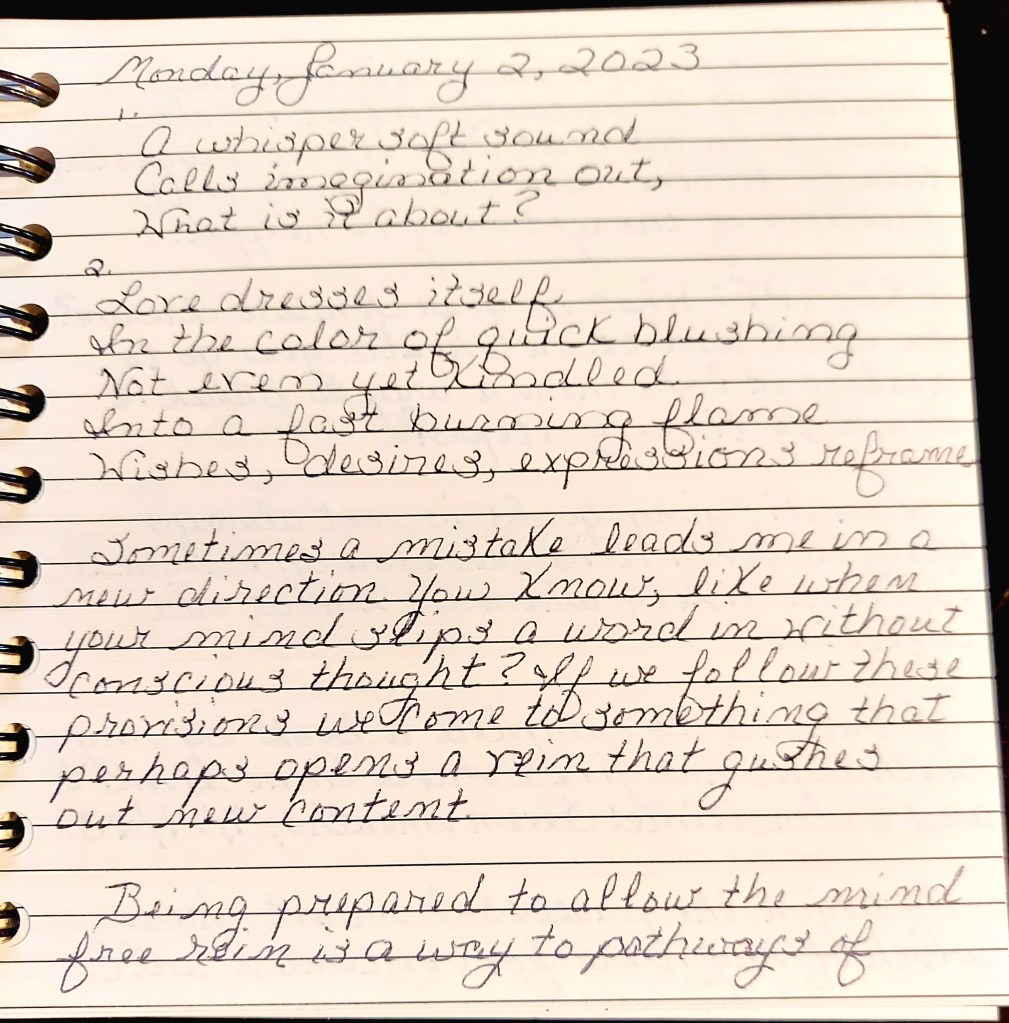 Monday, January 2, 2023
1.
A whisper soft sound
Calls imagination out,
What is it about?
2.
Love dresses itself
In the color of quick blushing
Not even yet kindled
Into a fast burning flame
Wishes, desires, expressions reframe
Sometimes a mistake leads me in a
new direction. You know, like when
your mind slips a word in without
conscious thought? If we follow these
provisions we come to something that
perhaps opens a vein that gushes
out new content.
Being prepared to allow the mind
free rein is a way to pathways of